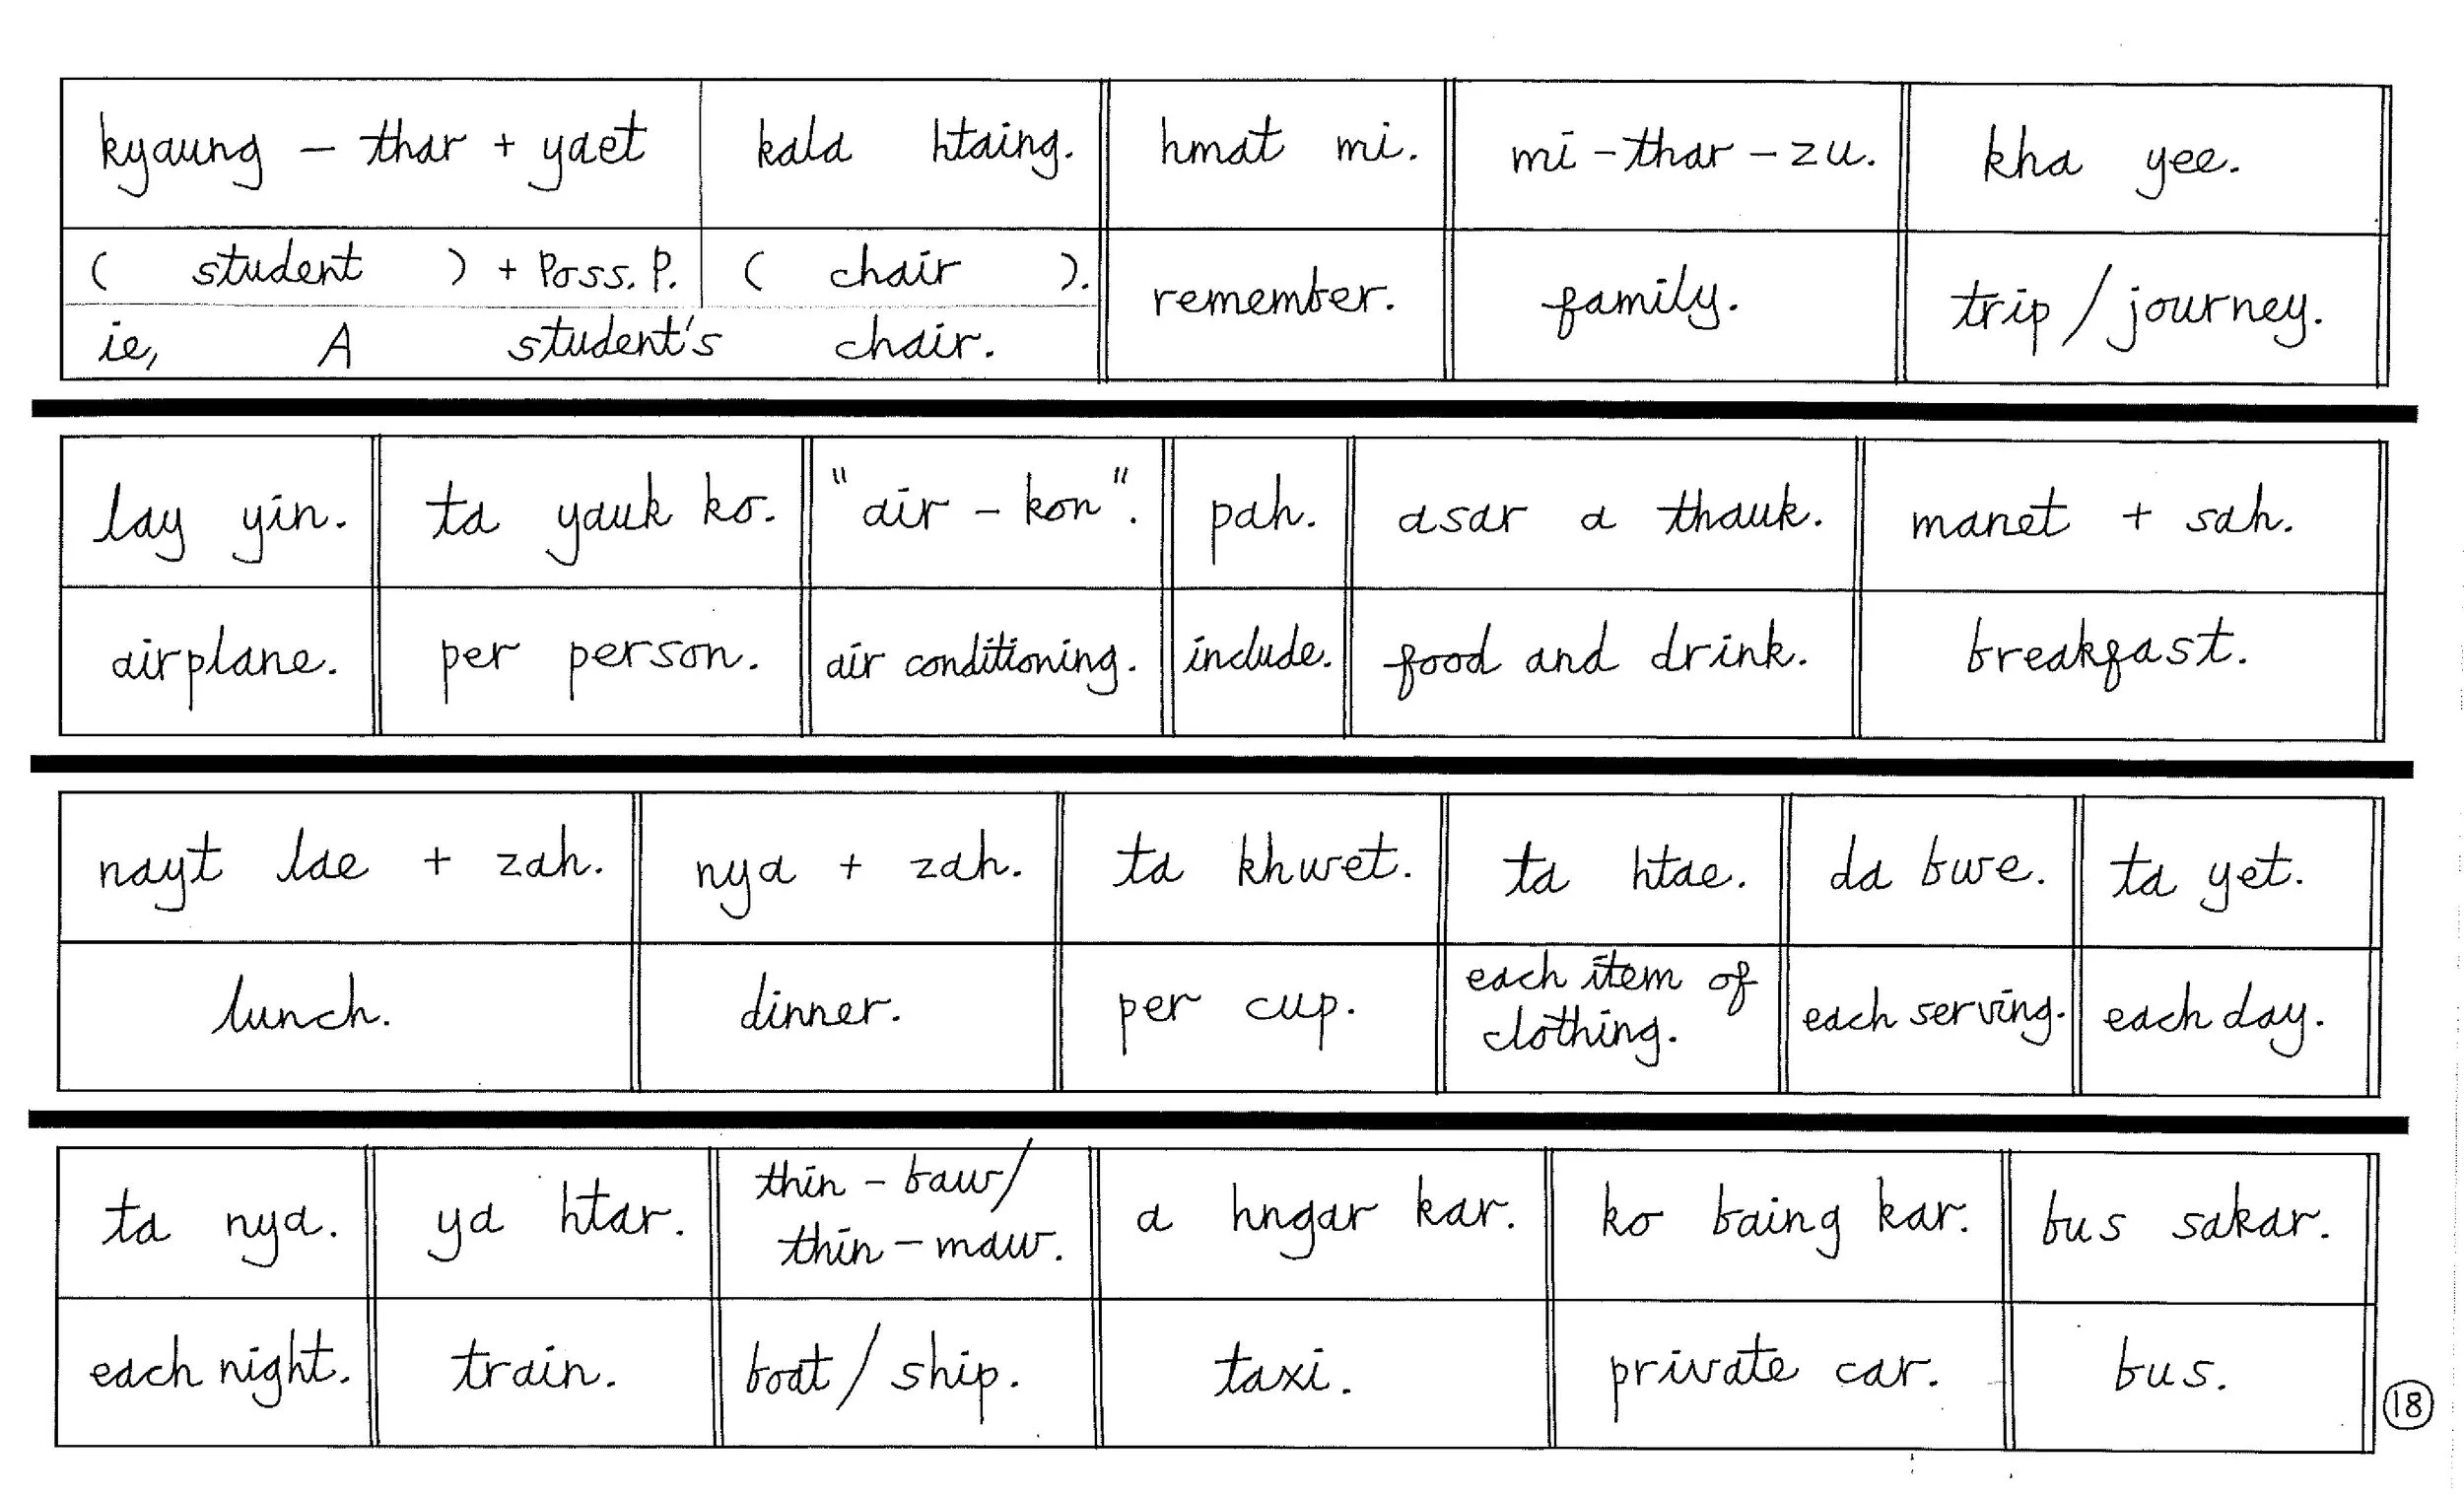 kyaung – thar + yaet kala htaing. hmat mi. mi – thar – zu. kha yee.
( student ) + Poss. P. ( chair ). remember. family. trip / journey.
ie, A student's chair.
lay yin. ta yauk ko. "air – kon". pah. asar a thauk. manet + sah.
airplane. per person. air conditioning. include. food and drink. breakfast.
nayt lae + zah. nya + zah. ta khwet. ta htae. da bwe. ta yet.
lunch. dinner. per cup. each item of clothing. each serving. each day.
ta nya. ya htar. thin – baw/ thin – maw. a hngar kar. ko baing kar. bus sakar.
each night. train. boat / ship. taxi. private car. bus.
18